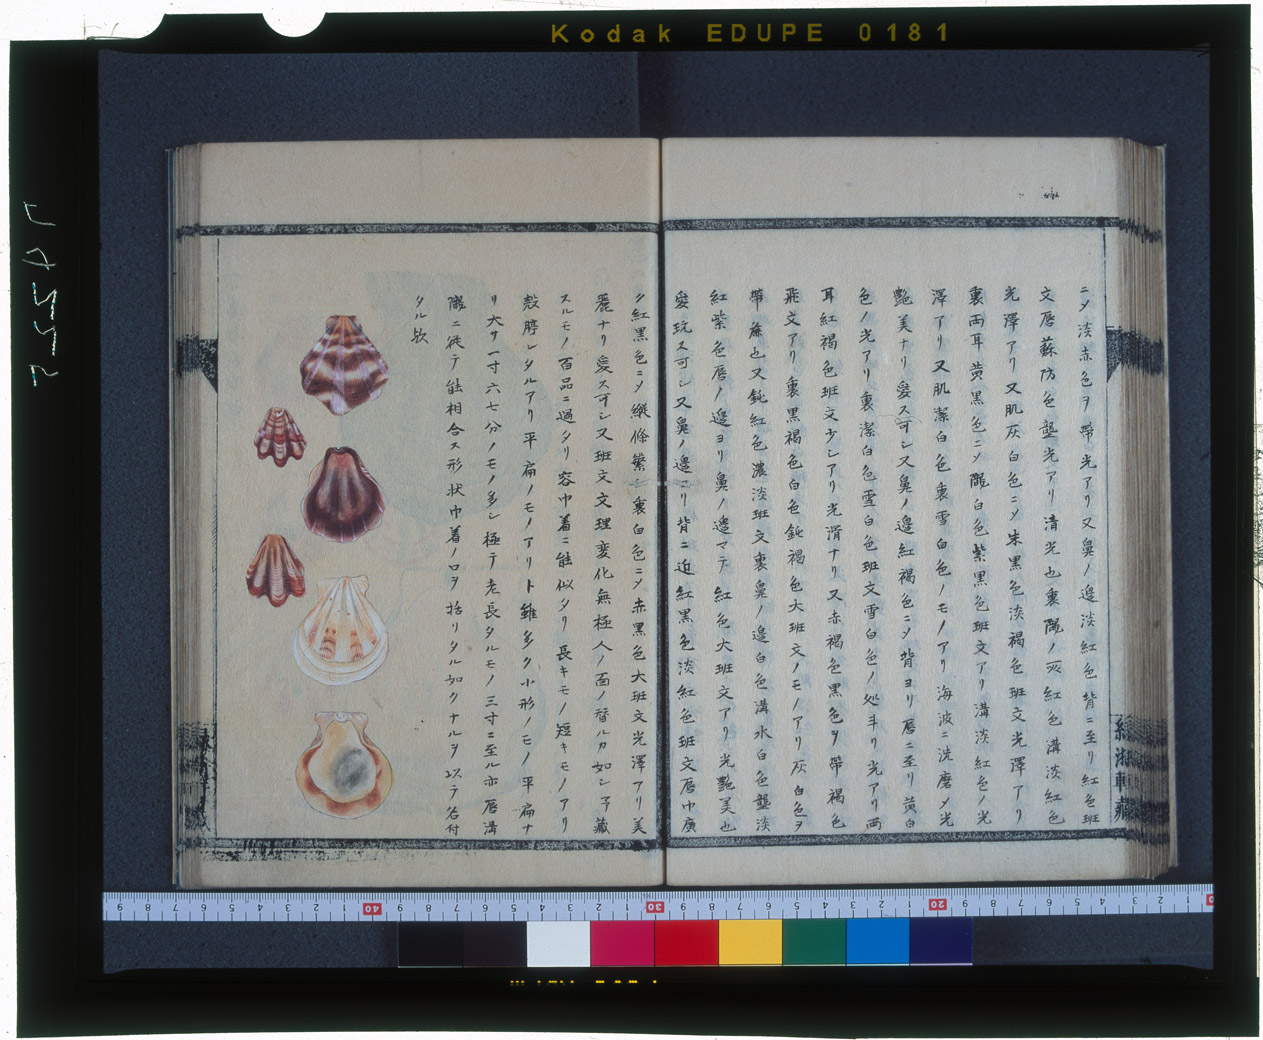 Kodak EDUPE 0181
ニシテ淡赤色ヲ帶光アリ又鼻ノ邉淡紅色背ニ至リ紅色班
文唇蘇防色壟光アリ清光也裏隴ノ灰紅色溝淡紅色
光澤アリ又肌灰白色ニシテ朱黒色淡褐色班文光澤アリ
裏両耳黄黒色ニシテ隴白色紫黒色班文アリ溝淡紅色ノ光
澤アリ又肌潔白色裏雪白色ノモノアリ海波ニ洗磨シテ光
艶美ナリ愛ス可シ又鼻ノ邉紅褐色ニシテ背ヨリ唇ニ至リ黄白
色ノ光アリ裏潔白色雪白色班文雪白色ノ処斗リ光アリ両
耳紅褐色班文少シアリ光滑ナリ又赤褐色黒色ヲ帶褐色
飛文アリ裏黒褐色白色鈍褐色大班文ノモノアリ灰白色ヲ
帶麻也又鈍紅色濃淡班文裏鼻ノ邉白色溝水白色壟淡
紅紫色唇ノ邉ヨリ鼻ノ邉マテ紅色大班文アリ光艶美也
愛玩ス可シ又鼻ノ邉ヨリ背ニ近紅黒色淡紅色班文唇巾廣
ク紅黒色ニシテ縱條繁シ裏白色ニシテ赤黒色大班文光澤アリ美
麗ナリ愛ス可シ又班文文理変化無極人ノ面ノ替ルカ如シ予藏
スルモノ百品ニ過タリ容巾着ニ能似タリ長キモノ短キモノアリ
殻脝レタルアリ平扁ノモノアリト雖多ク小形ノモノ平扁ナ
リ大サ一寸六七分ノモノ多シ極テ老長タルモノ三寸ニ至ル亦唇溝
隴ニ従テ能相合ス形状巾着ノ口ヲ括リタル如クナルヲ以テ名付
タル欤
軒藏